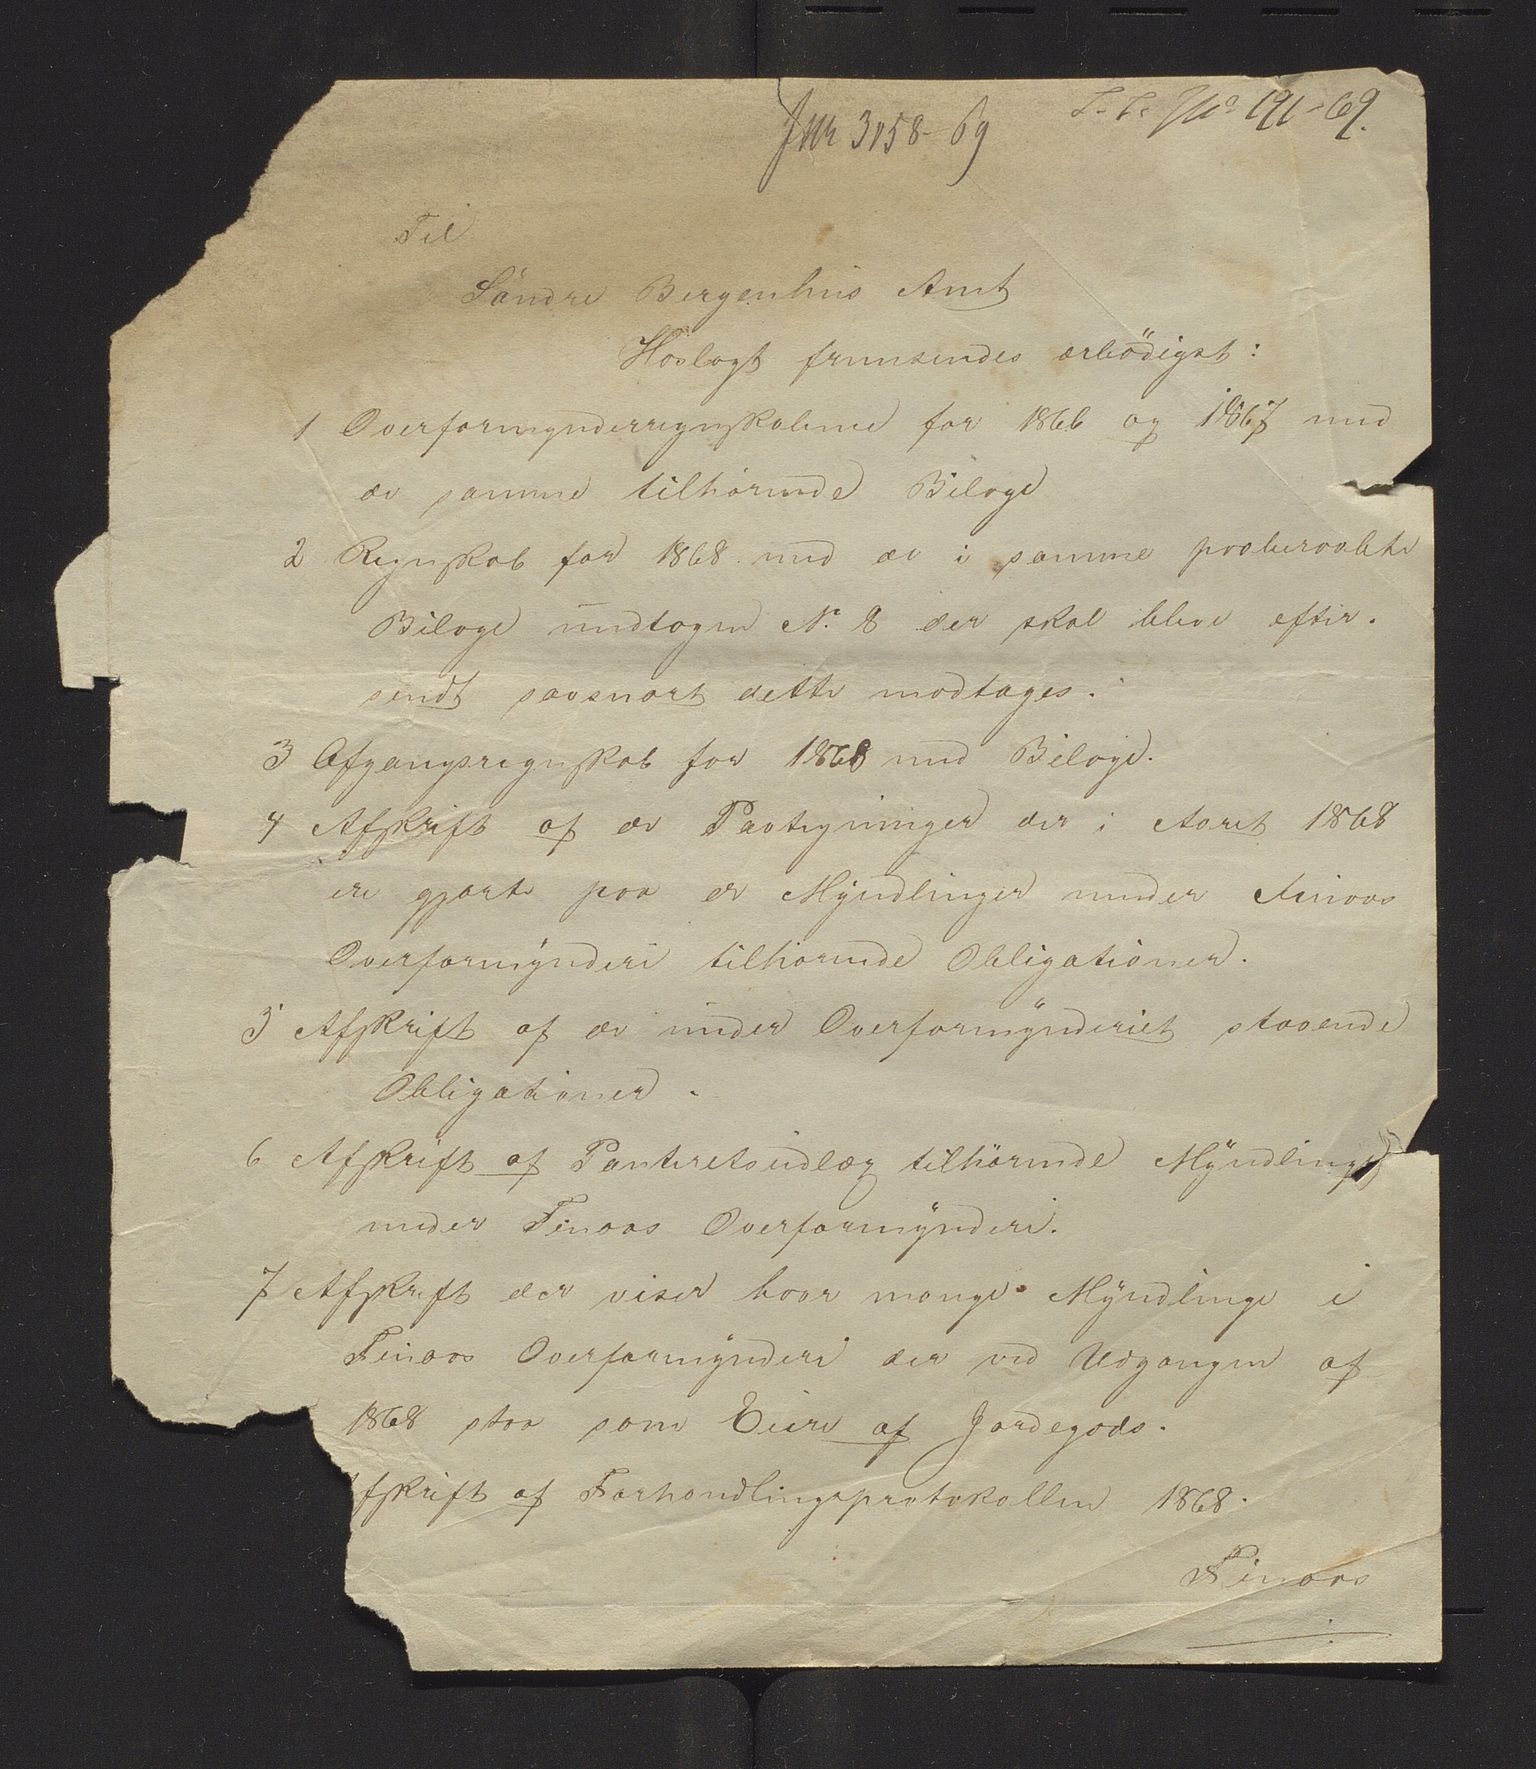 JNr 3158-69
No 191-69.
Til
Söndre Bergenhus Amt
Hoslagt fremsendes ærbödigst:
1 Overformynderregnskabene for 1866 og 1867 med
de samme tilhörende Bilage
2 Regnskab for 1868 med de i samme paaberaabte
Bilage undtagen Nr 8 der skal blive efter-
sendt saasnart dette modtages.
3 Afgangsregnskab for 1868 med Bilage.
4 Afskrift af de Paategninger der i Aaret 1868
ere gjorte paa de Myndlinger under Finaas
Overformynderi tilhörende Obligationer.
5 Afskrift af de under Overformynderiet staaende
Obligationer.
6 Afskrift af Panteretsudlæg tilhörende Myndlinge
under Finaas Overformynderi.
7 Afskrift der viser hvor mange Myndlinge i
Finaas Overformynderi der ved Udgangen af
1868 staa som Eiere af Jordegods.
fskrift af Forhandlingsprotokollen 1868.
Finaas